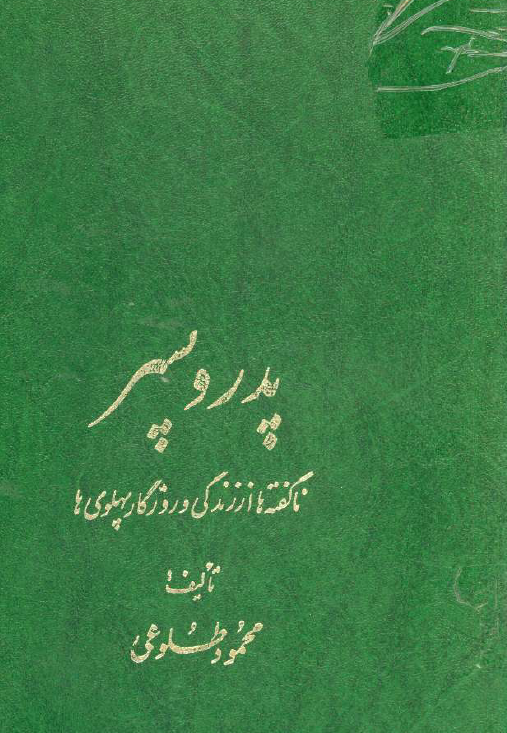 پدر و پسر
ناگفته ها از زندگی و روزگار پهلوی ها
تألیف:
محمود طلوعی